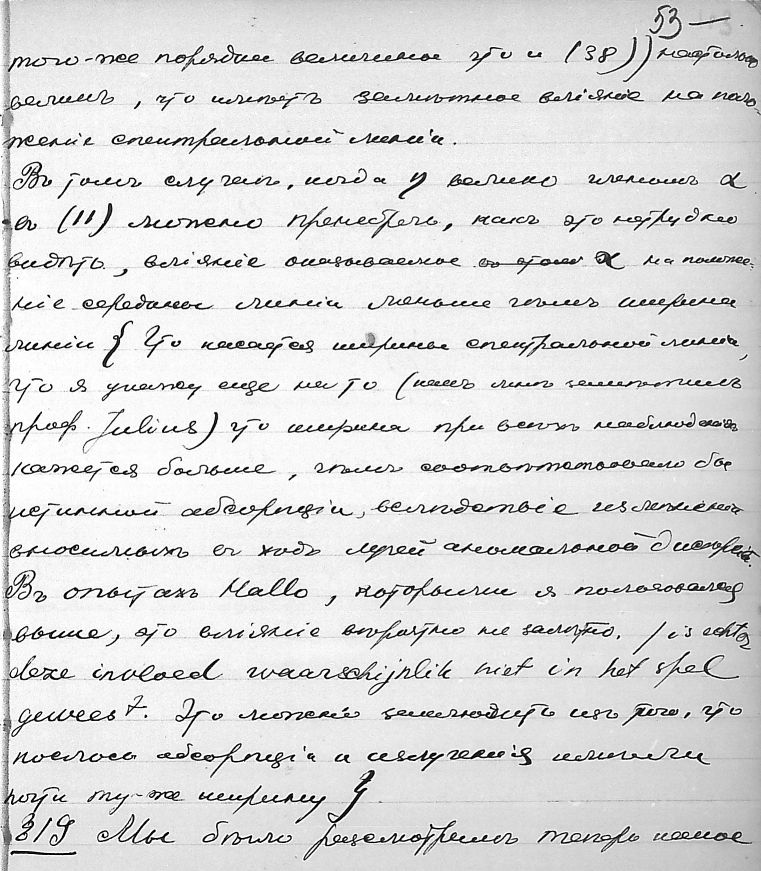 53 —
того-же порядка величины что и (38)) настолько
великъ, что имѣетъ замѣтное вліяніе на поло-
женіе спектральной линіи.
Въ томъ случаѣ, когда η велико членомъ α
въ (11) можно пренебречь, какъ это нетрудно
видѣть, вліяніе оказываемое α на положе-
ніе середины линіи меньше чѣмъ ширина
линіи { Что касается ширины спектральной линіи,
то я укажу еще на то (какъ мнѣ замѣтилъ
проф. Julius) что ширина при всѣхъ наблюденіяхъ
кажется больше, чѣмъ соотвѣтствовало бы
истинной абсорпціи, вслѣдствіе измѣненій
вносимыхъ въ ходъ лучей аномальной дисперсіей.
Въ опытахъ Hallo, которыми я пользовался
выше, это вліяніе вѣроятно не замѣтно. / is echter
deze invloed waarschijnlijk niet in het spel
geweest. Это можно заключить изъ того, что
полосы абсорпціи и излученія имѣли
почти ту-же ширину }.
§19 Мы бѣгло разсмотримъ теперь какое